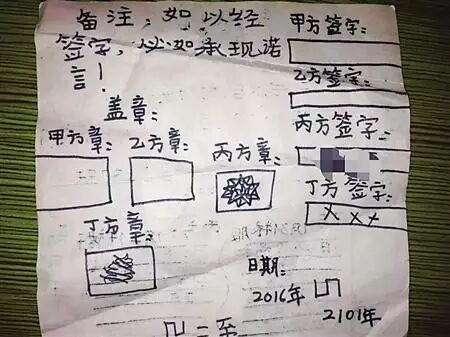 备注：如以经
签字，以如承现诺
言！
甲方签字：
乙方签字：
丙方签字：
丁方签字：
xxx
盖章：
甲方章：
乙方章：
丙方章：
丁方章：
日期：
2016年
2101年